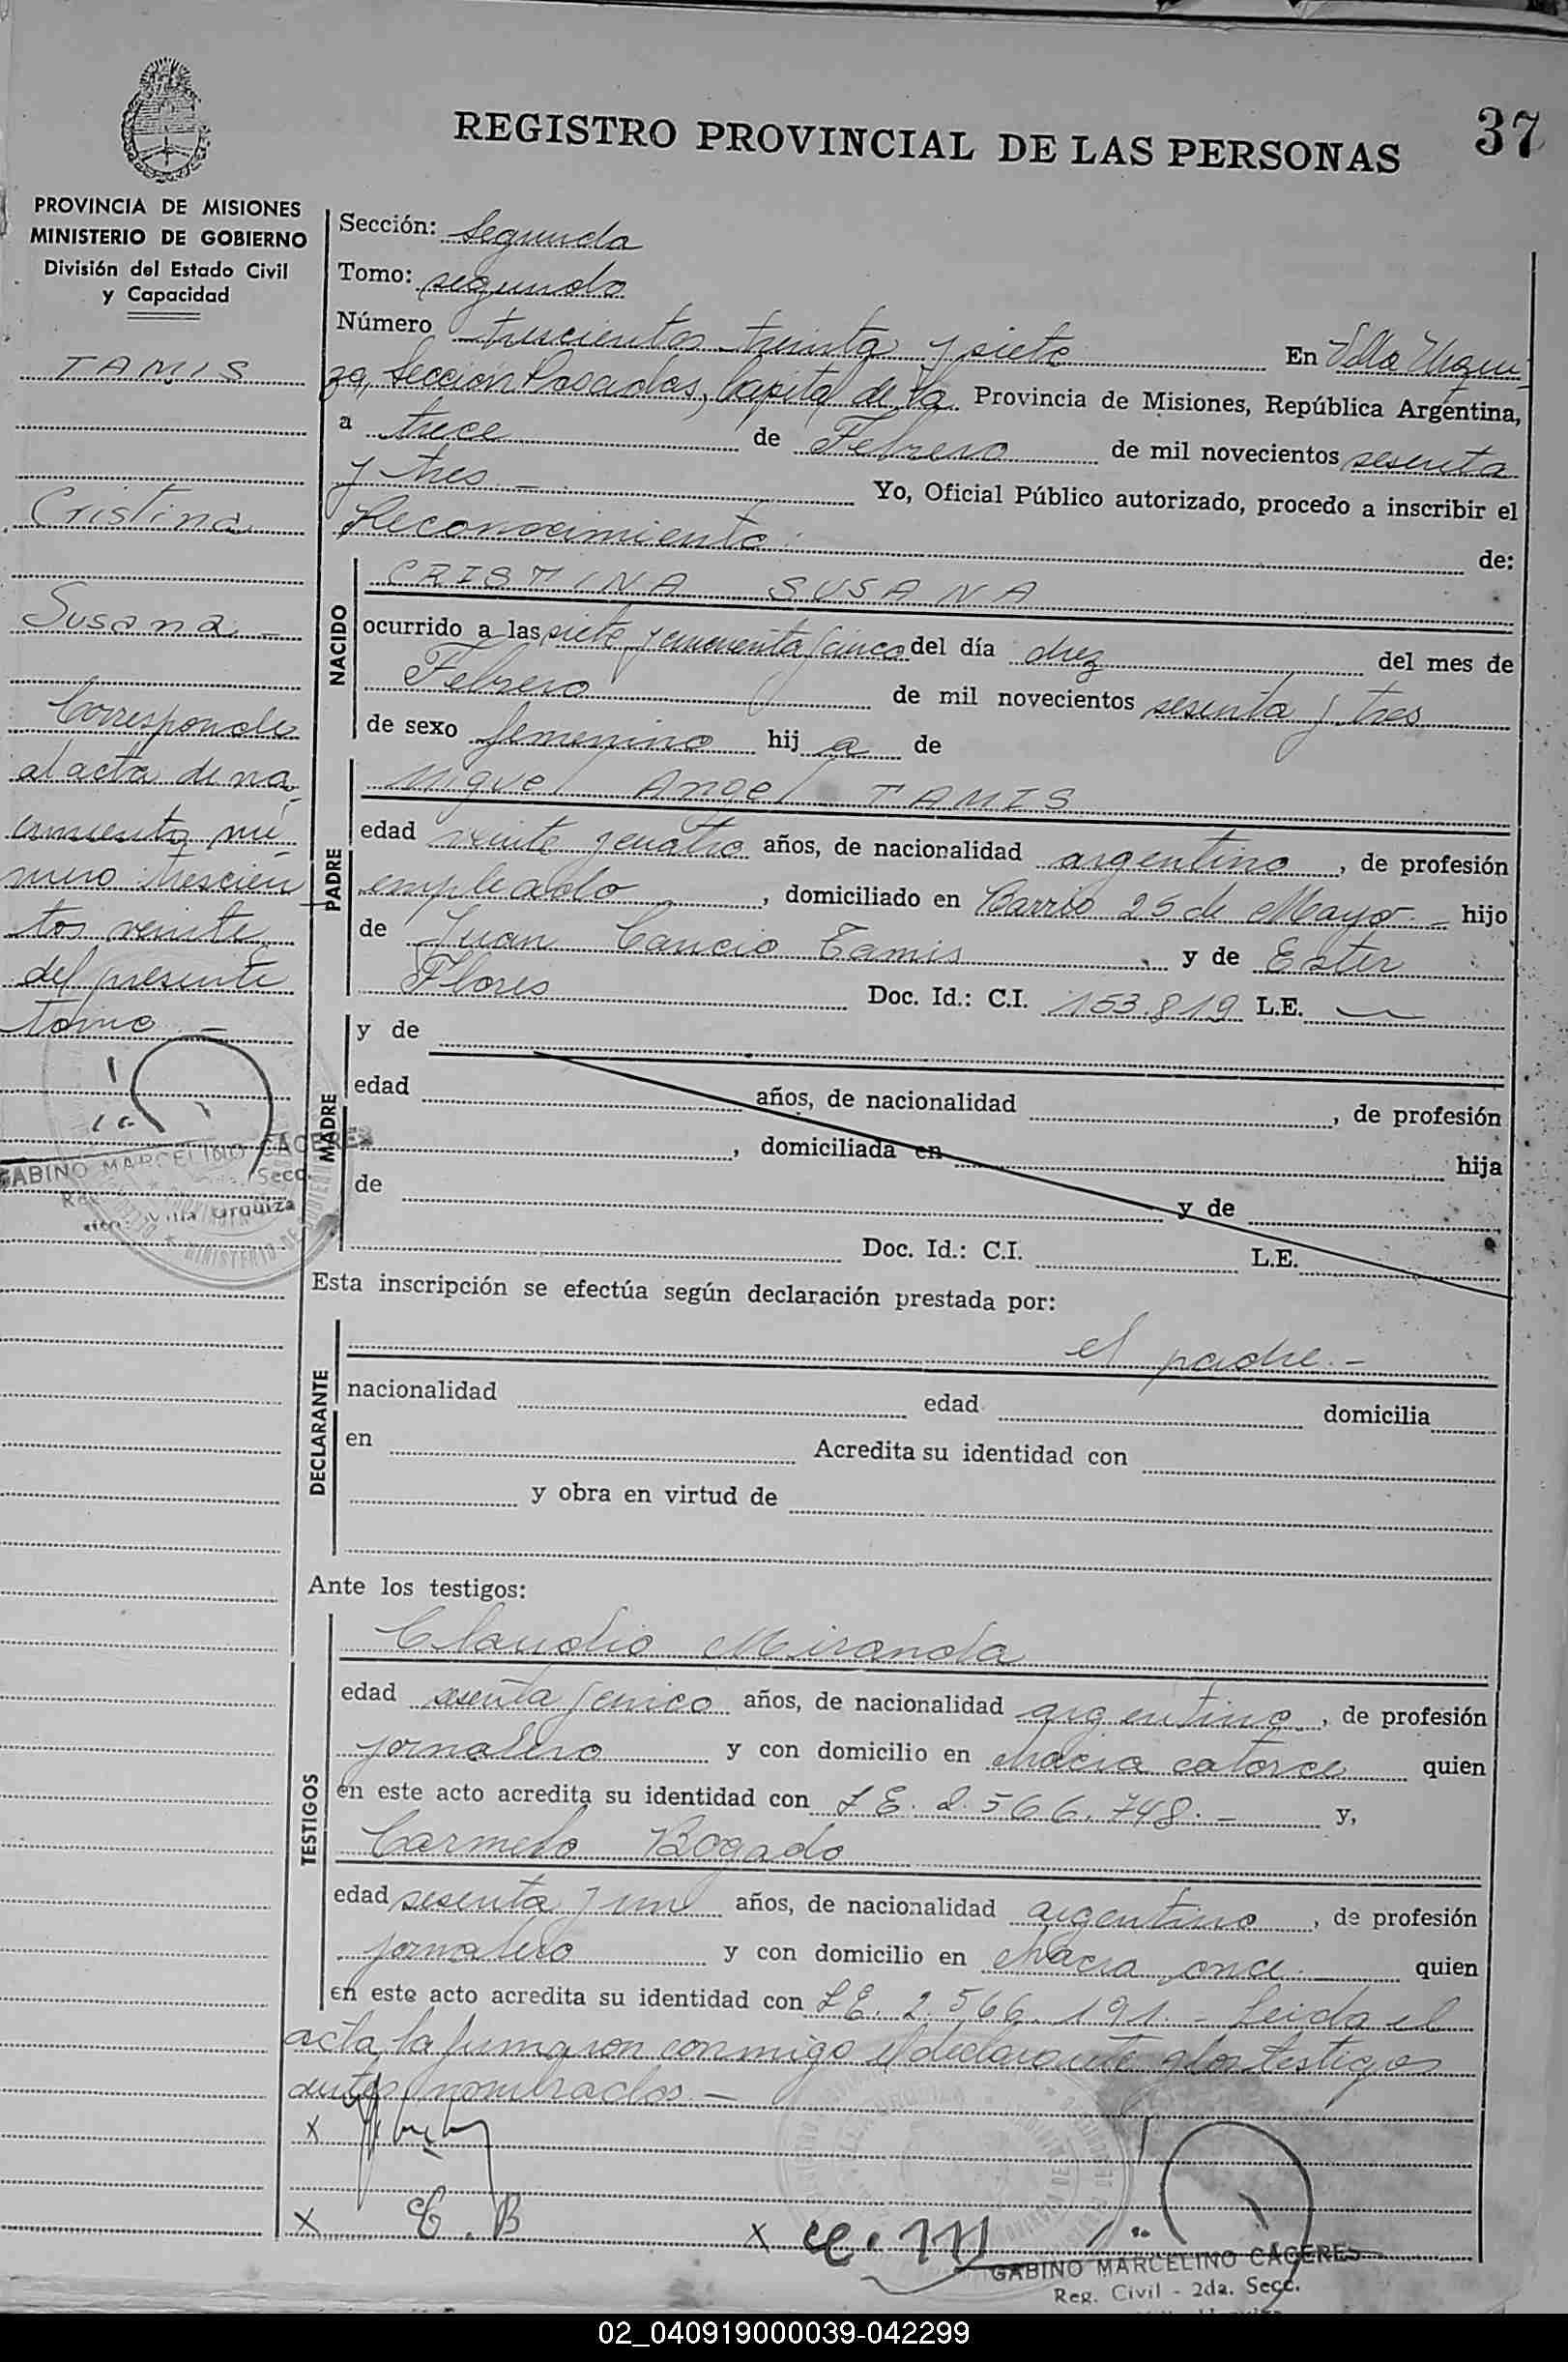 37
REGISTRO PROVINCIAL DE LAS PERSONAS
PROVINCIA DE MISIONES
MINISTERIO DE GOBIERNO
División del Estado Civil
y Capacidad
TAMIS
Cristina
Susana -
Corresponde
al acta de na-
cimiento nú-
mero trescien
tos veinte
del presente
tomo -
GABINO MARCELINO CACERES
Villa Urquiza
Sección: Segunda
Tomo: segundo
Número trescientos treinta y siete En Villa Urqui-
za, Sección Posadas, Capital de la Provincia de Misiones, República Argentina,
a trece de Febrero de mil novecientos sesenta
y tres - Yo, Oficial Público autorizado, procedo a inscribir el
Reconocimiento de:
NACIDO
CRISTINA SUSANA
ocurrido a las siete y cincuenta y cinco del día diez del mes de
Febrero de mil novecientos sesenta y tres
de sexo femenino hij a de
PADRE
Miguel Angel TAMIS
edad veinte y cuatro años, de nacionalidad argentino, de profesión
empleado, domiciliado en Barrio 25 de Mayo - hijo
de Juan Cancio Tamis y de Ester
Flores Doc. Id.: C.I. 153.819 L.E.
MADRE
y de
edad años, de nacionalidad , de profesión
, domiciliada en hija
de y de
Doc. Id.: C.I. L.E.
Esta inscripción se efectúa según declaración prestada por:
DECLARANTE
el padre.-
nacionalidad edad domicilia
en Acredita su identidad con
y obra en virtud de
Ante los testigos:
TESTIGOS
Claudio Miranda
edad sesenta y cinco años, de nacionalidad argentino, de profesión
jornalero y con domicilio en chacra catorce quien
en este acto acredita su identidad con L.E. 2.566.748.- y,
Carmelo Bogado
edad sesenta y un años, de nacionalidad argentino, de profesión
jornalero y con domicilio en chacra once quien
en este acto acredita su identidad con L.E. 2.566.191.- Leida el
acta la firmaron conmigo el declarante y los testigos
antes nombrados.-
x
x C. B x C. M
GABINO MARCELINO CACERES
Reg. Civil - 2da. Secc.
02_040919000039-042299